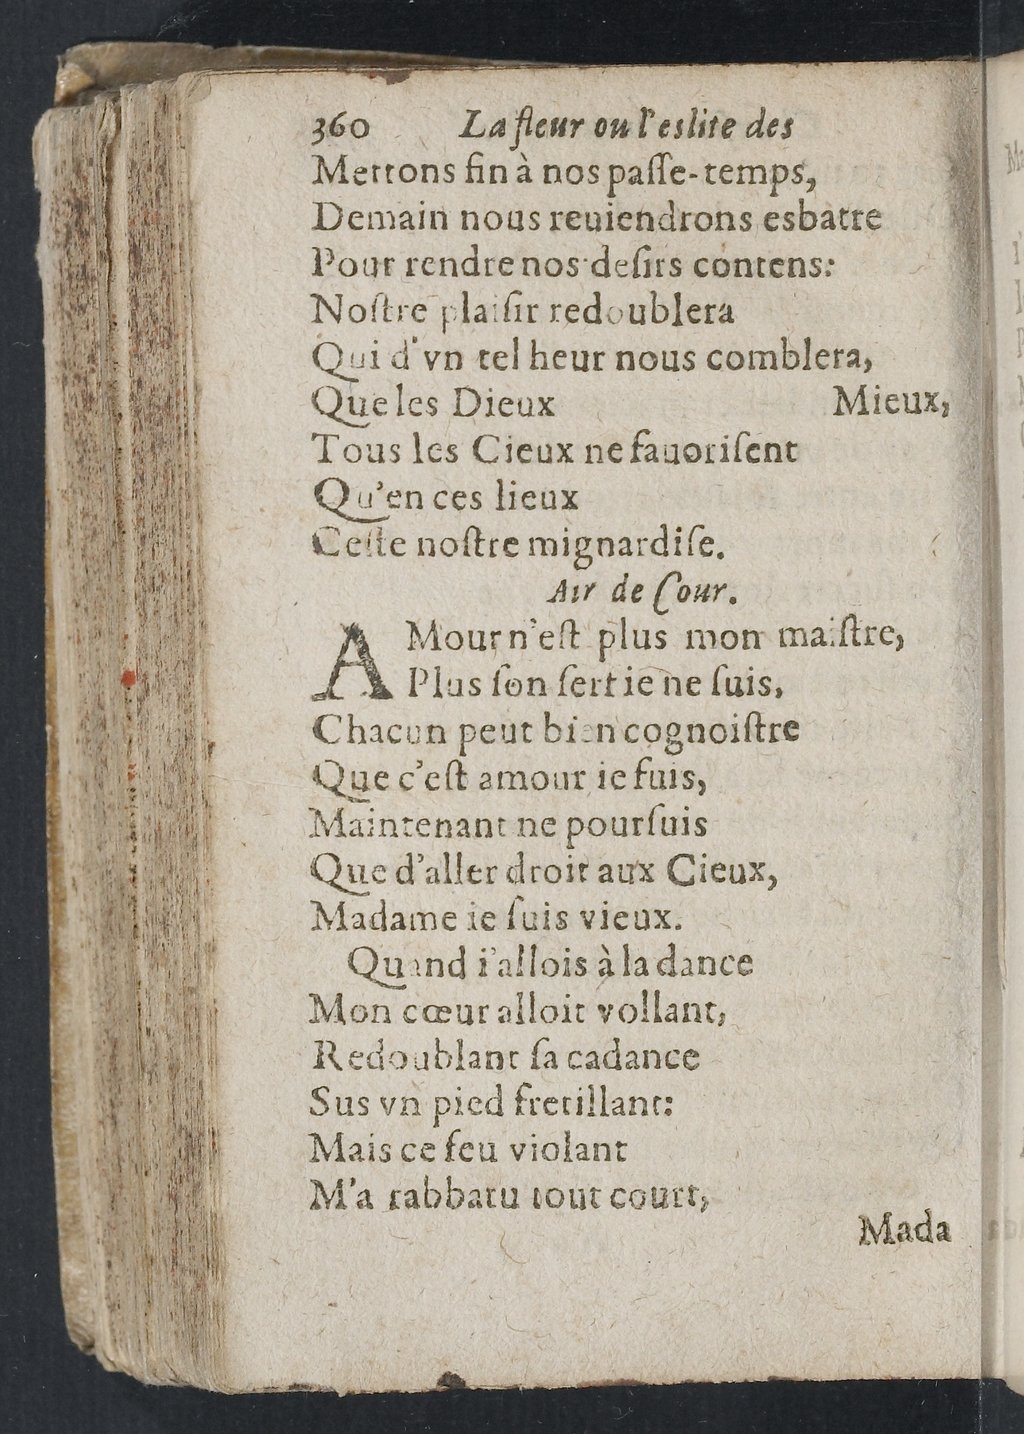 360 La fleur ou l'eslite des
Mettons fin à nos paſſe-temps,
Demain nous reuiendrons esbatre
Pour rendre nos deſirs contens:
Noſtre plaiſir redoublera
Qui d'vn tel heur nous comblera,
Que les Dieux Mieux,
Tous les Cieux ne fauoriſent
Qu'en ces lieux
Ceſte noſtre mignardiſe.
Air de Cour.
AMour n'eſt plus mon maiſtre,
Plus ſon ſert ie ne ſuis,
Chacun peut bien cognoiſtre
Que c'eſt amour ie fuis,
Maintenant ne pourſuis
Que d'aller droit aux Cieux,
Madame ie ſuis vieux.
Quand i'allois à la dance
Mon cœur alloit vollant,
Redoublant ſa cadance
Sus vn pied fretillant:
Mais ce feu violant
M'a rabbatu tout court,
Mada